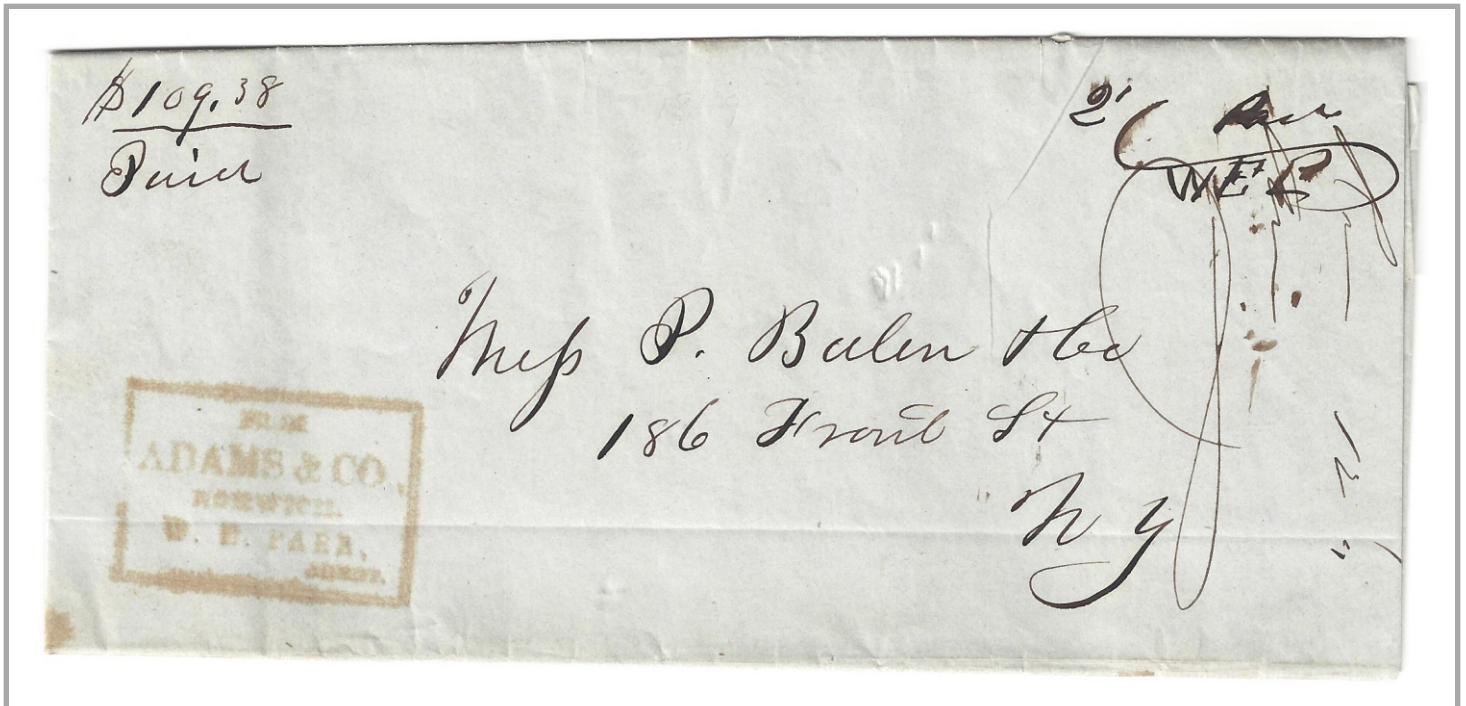 $109.38
Paid
2/ Paid
WEP
Mess P. Balen & Co
186 Front St
N Y
FROM
ADAMS & CO.,
NORWICH.
W. E. PARK,
AGENT.